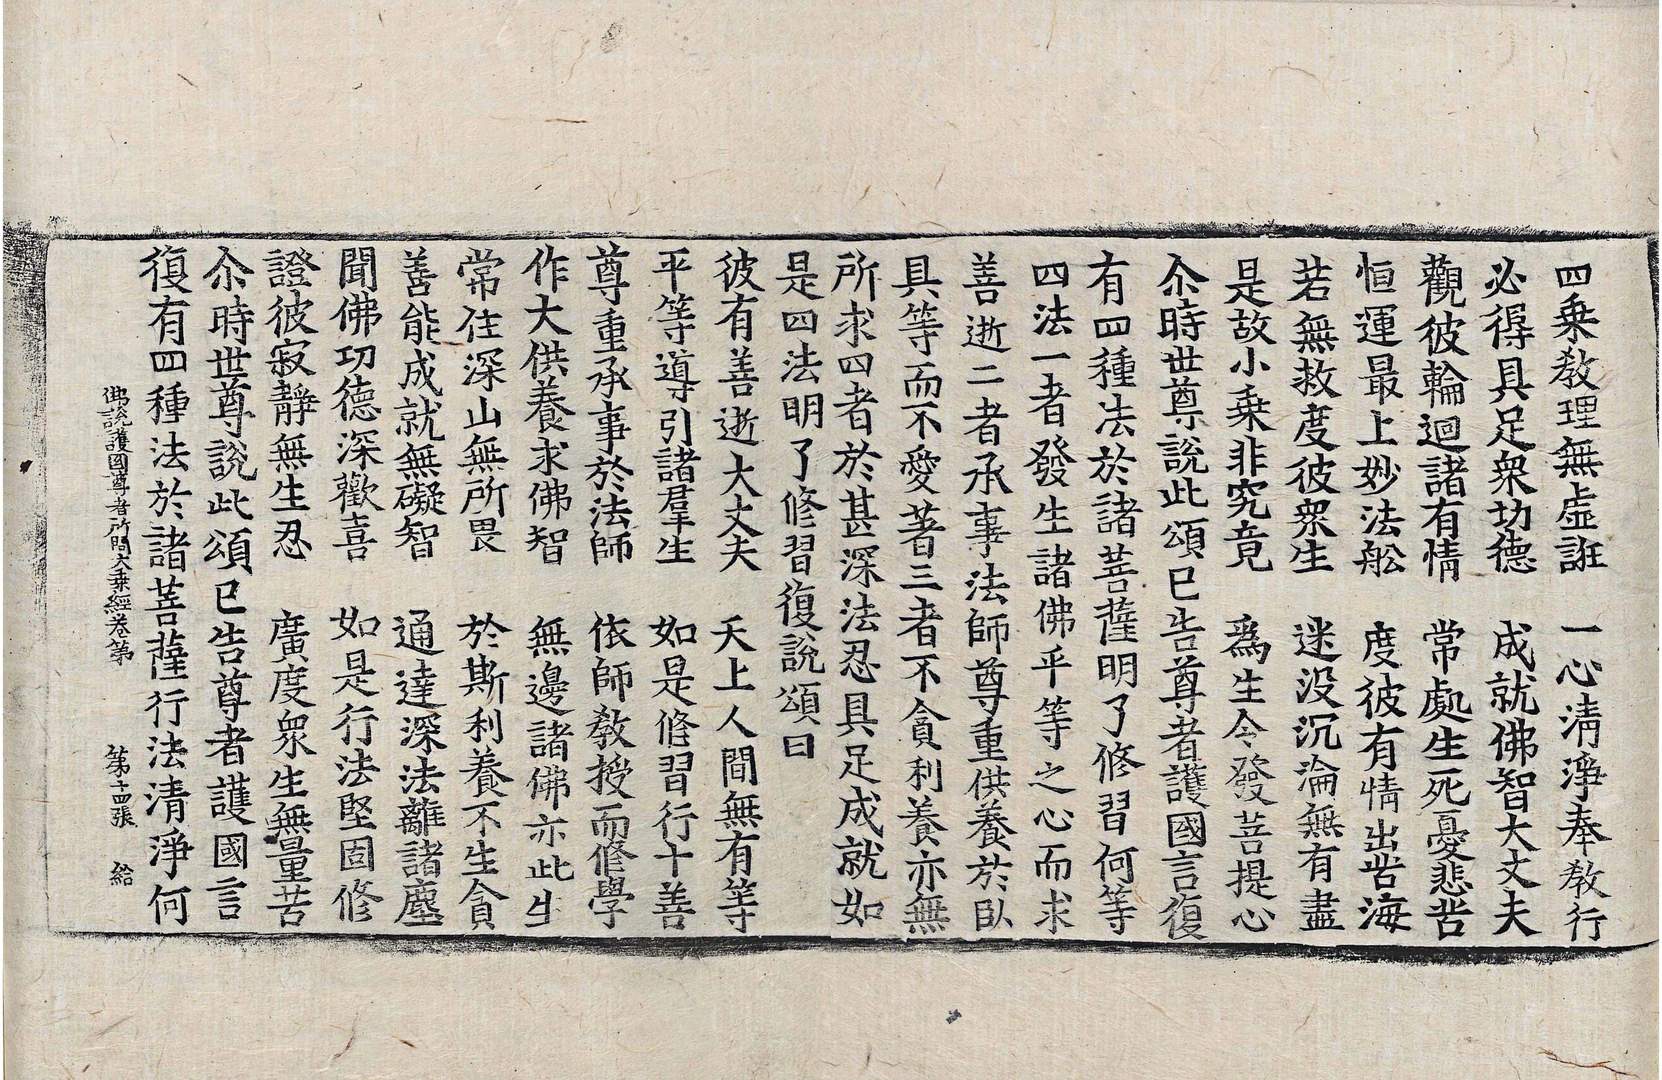 四乗敎理無虛誑　一心淸淨奉敎行
必得具足衆功德　成就佛智大丈夫
觀彼輪迴諸有情　常處生死憂悲苦
恒運最上妙法舩　度彼有情出苦海
若無救度彼衆生　迷没沉淪無有盡
是故小乗非究竟　爲生令發菩提心
尒時世尊說此頌已告尊者護國言復
有四種法於諸菩薩明了修習何等
四法一者發生諸佛平等之心而求
善逝二者承事法師尊重供養於卧
具等而不愛著三者不貪利養亦無
所求四者於甚深法忍具足成就如
是四法明了修習復說頌曰
彼有善逝大丈夫　天上人間無有等
平等導引諸羣生　如是修習行十善
尊重承事於法師　依師敎授而修學
作大供養求佛智　無邊諸佛亦此生
常住深山無所畏　於斯利養不生貪
善能成就無礙智　通達深法離諸塵
聞佛功德深歡喜　如是行法堅固修
證彼寂靜無生忍　廣度衆生無量苦
尒時世尊說此頌已告尊者護國言
復有四種法於諸菩薩行法清淨何
佛說護國尊者所問大乗經卷第　第十四張　給